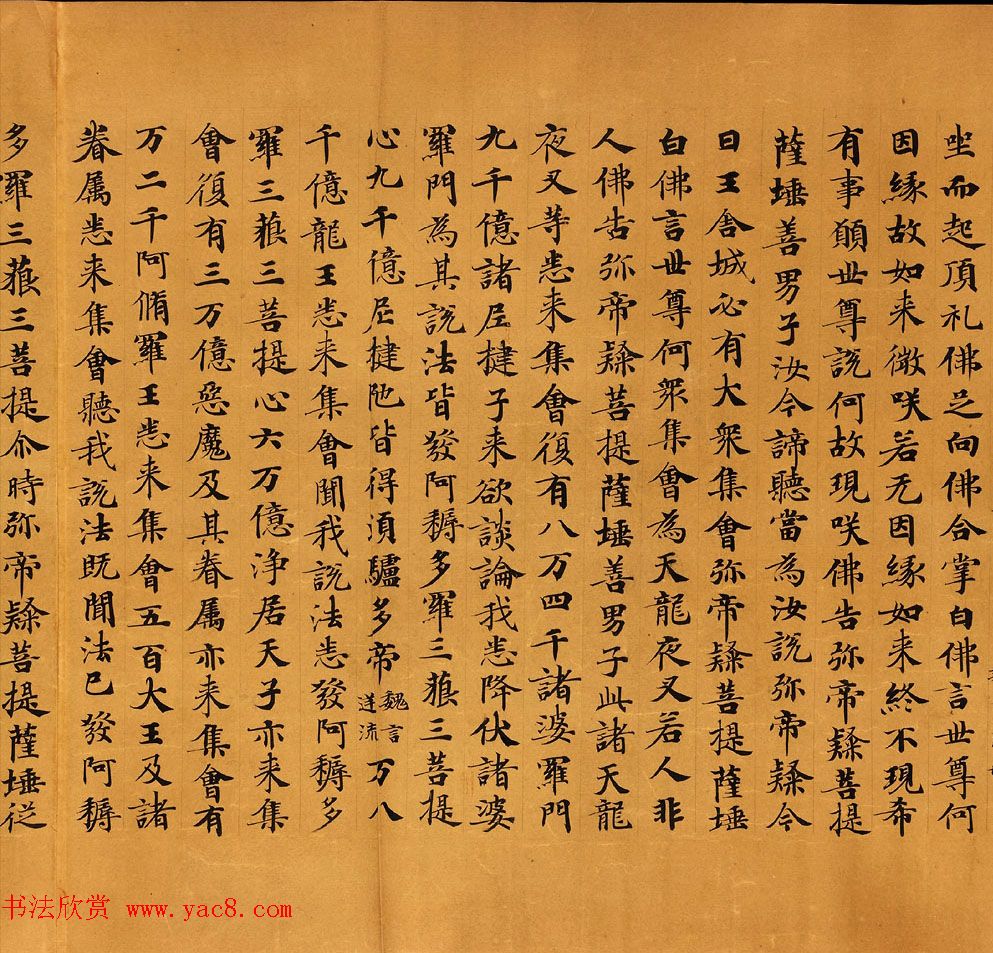 坐而起頂礼佛足向佛合掌白佛言世尊何
因緣故如来微咲若无因緣如来終不現希
有事願世尊説何故現咲佛告弥帝𨽻菩提
薩埵善男子汝今諦聽當為汝説弥帝𨽻今
日王舍城必有大衆集會弥帝𨽻菩提薩埵
白佛言世尊何衆集會為天龍夜叉若人非
人佛告弥帝𨽻菩提薩埵善男子此諸天龍
夜叉等悉来集會復有八万四千諸婆羅門
九千億諸尼揵子来欲談論我悉降伏諸婆
羅門為其説法皆發阿耨多羅三藐三菩提
心九千億尼揵陁皆得湏驢多帝魏言逆流万八
千億龍王悉来集會聞我説法悉發阿耨多
羅三藐三菩提心六万億浄居天子亦来集
會復有三万億惡魔及其眷属亦来集會有
万二千阿脩羅王悉来集會五百大王及諸
眷属悉来集會聽我説法既聞法已發阿耨
多羅三藐三菩提尒時弥帝𨽻菩提薩埵従
书法欣赏 www.yac8.com